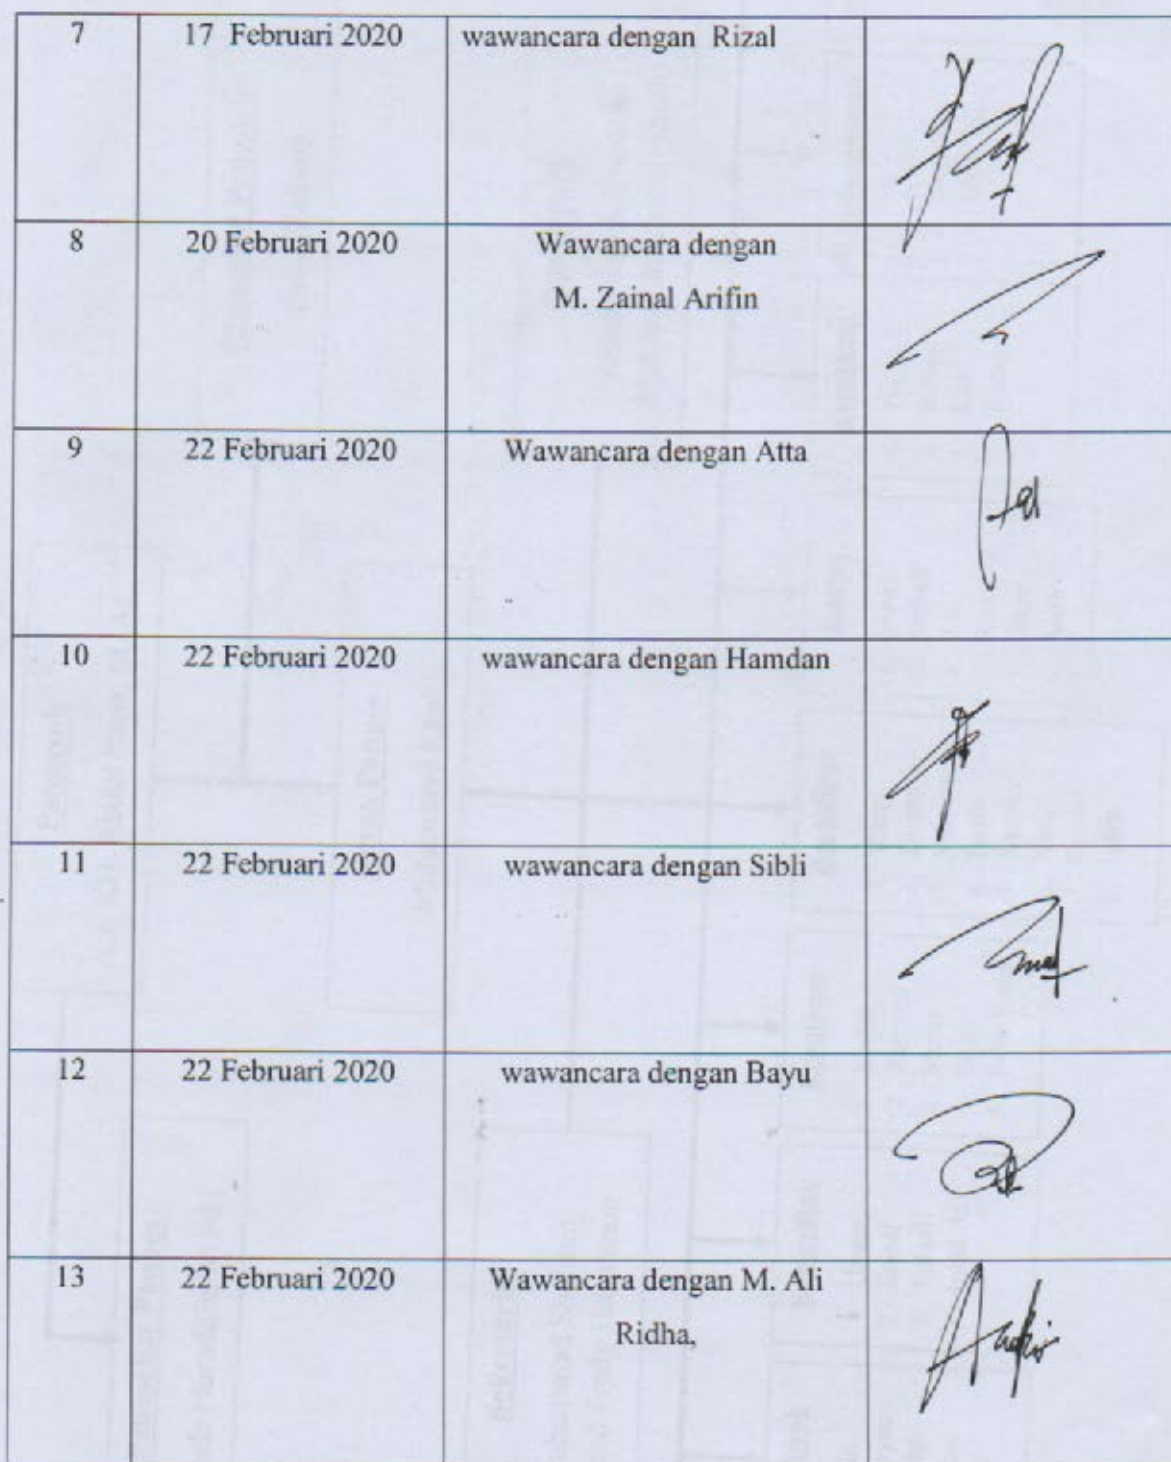 7 17 Februari 2020 wawancara dengan Rizal
8 20 Februari 2020 Wawancara dengan
M. Zainal Arifin
9 22 Februari 2020 Wawancara dengan Atta
10 22 Februari 2020 wawancara dengan Hamdan
11 22 Februari 2020 wawancara dengan Sibli
12 22 Februari 2020 wawancara dengan Bayu
13 22 Februari 2020 Wawancara dengan M. Ali
Ridha,